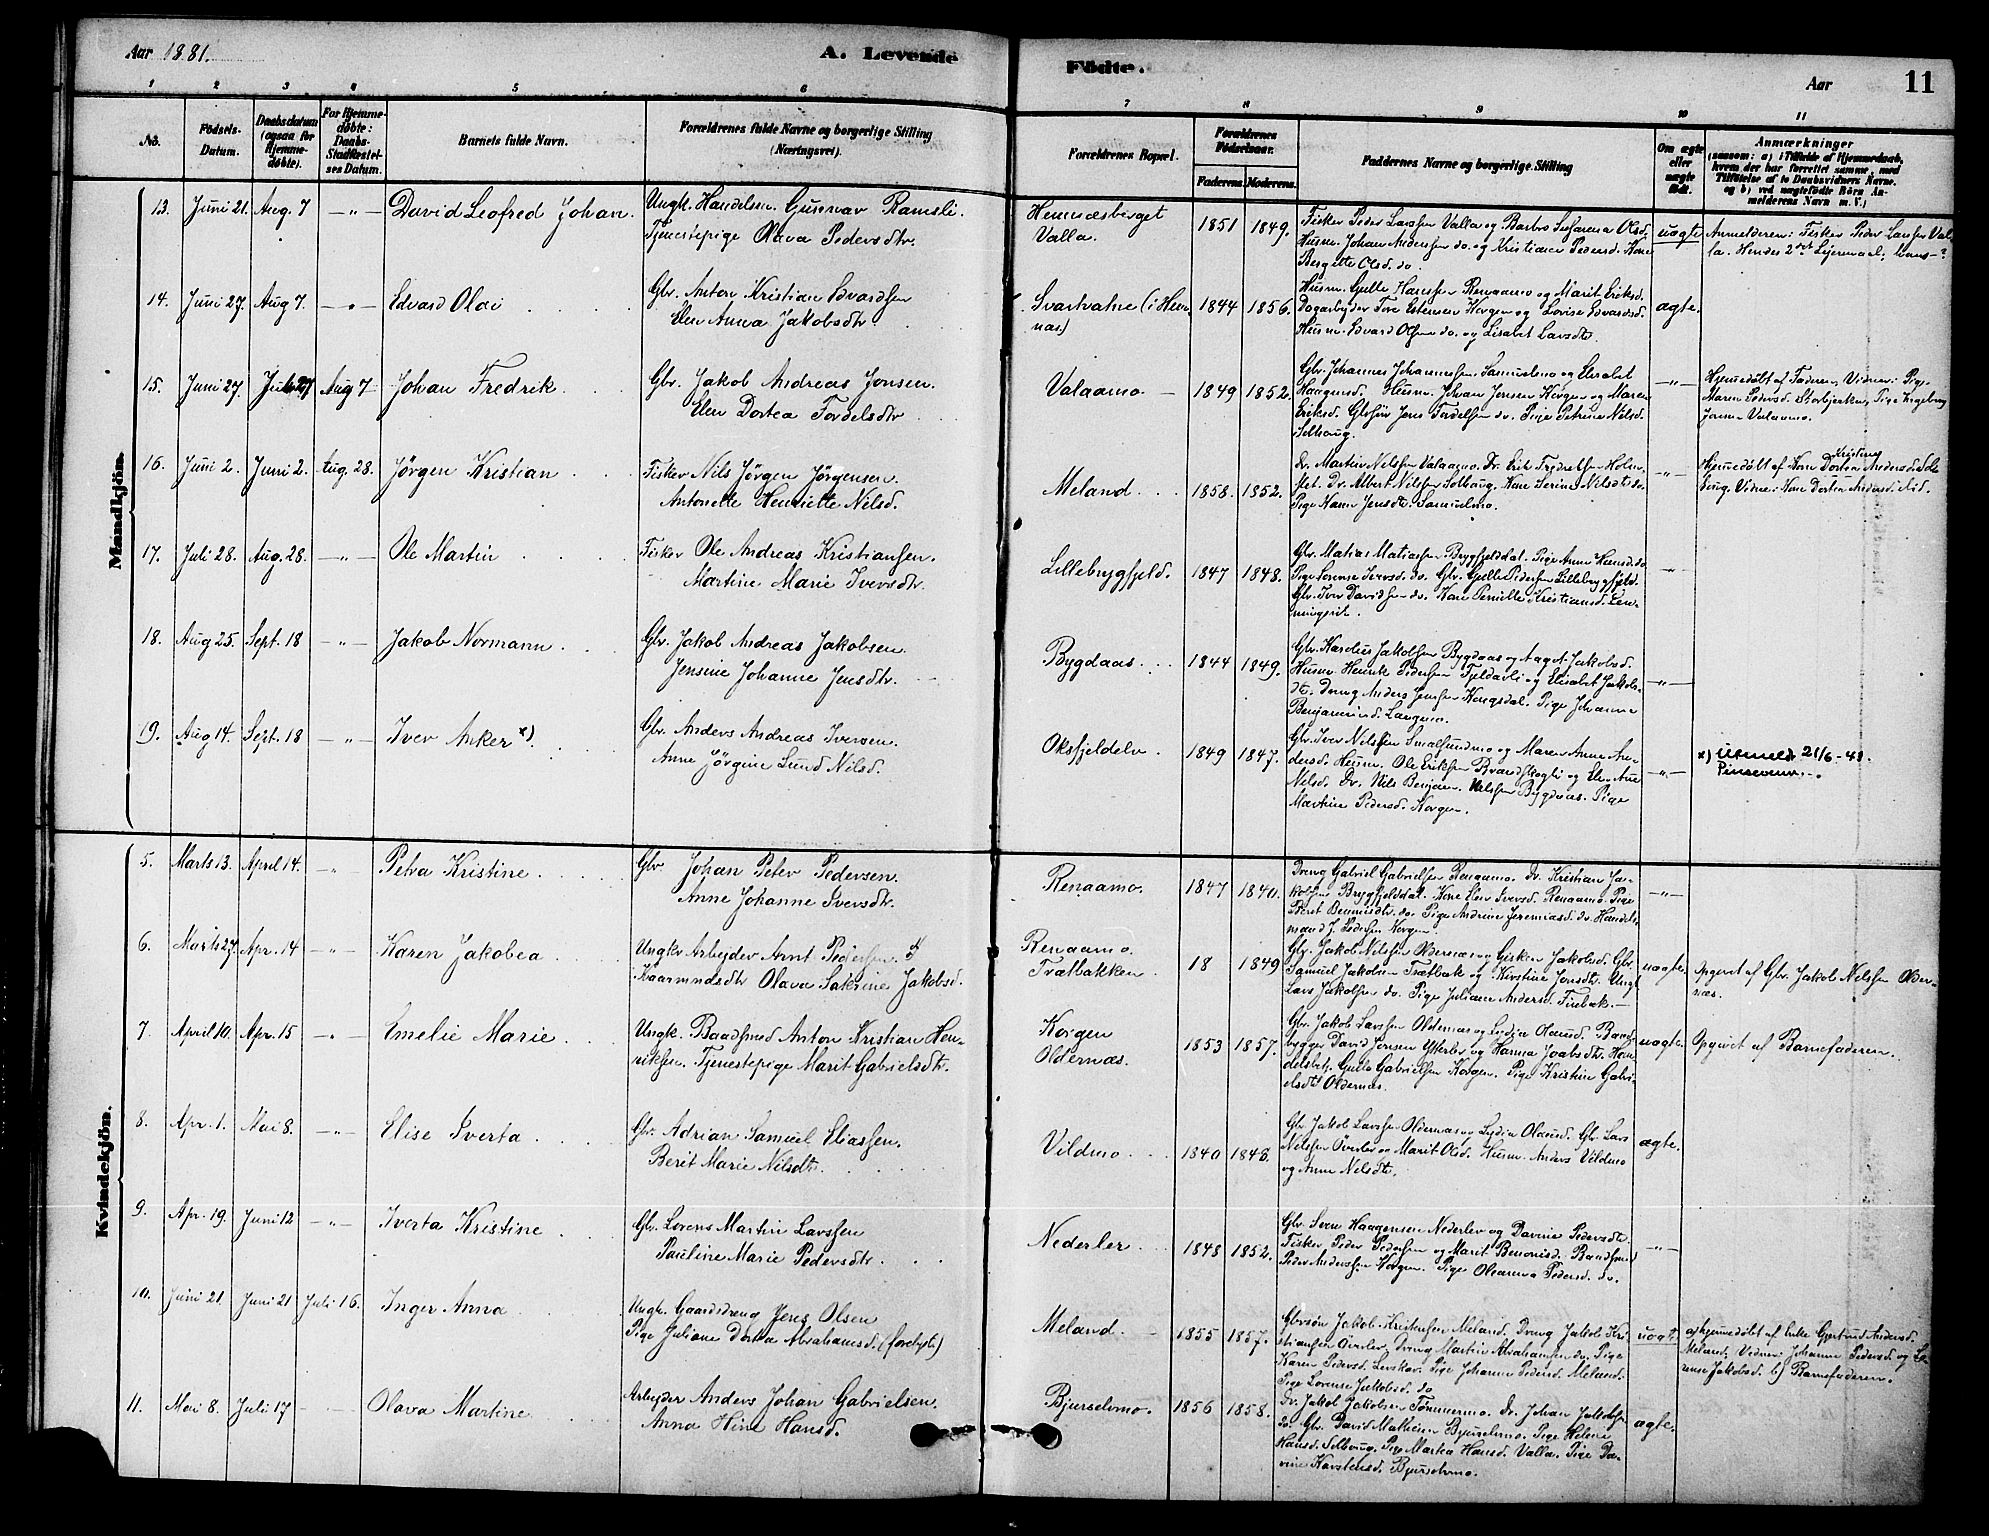 Aar 1881.
A. Levende
Fødte.
Aar
11
1 2 3 4 5 6 7 8 9 10 11
No.
Fødsels-Datum.
Daabsdatum (ogsaa for Hjemmedøbte).
For Hjemmedøbte: Daabs-Stadfæstelses Datum.
Barnets fulde Navn.
Forældrenes fulde Navne og borgerlige Stilling (Næringsvei).
Forældrenes Bopæl.
Forældrenes Fødselsaar.
Faderens. Moderens.
Faddernes Navne og borgerlige Stilling
Om ægte eller uægte født.
Anmærkninger
Mandkjön.
13. Juni 21. Aug. 7 —"— David Leofred Johan. Ungk. Handelsm. Gunnar Ramsli.
Tjenestepige Olava Pedersdtr.
Hemnæsberget
Valla.
1851 1849.
Fisker Peder Larssen Valla og Barbro Olsd.
Husm. Johan Anderssen do. og Kristiane Pedersd. Kone
Bergitte Olsd. do.
uægte
Anmelderen: Fisker Peder Larssen Valla.
14. Juni 27. Aug 7. —"— Edvard Olai Gbr. Anton Kristian Edvardsen
Elen Anna Jakobsdtr.
Svartvatne (i Hemnæs)
1844 1856.
Husm. Gulle Hanssen Renaamo og Marit Eriksd.
Husm. Edvard Olsen do. og Lisabet Larsdtr.
ægte.
15. Juni 27. Juli 27 Aug 7 Johan Fredrik Gbr. Jakob Andreas Jonsen.
Elen Dortea Fordelsdtr
Valaamo. —
1849 1852.
Gbr. Johannes Johannessen Samuelmo og Elisabet
Haagensd. Husm. Johan Jensen Korgen og Maren
Eriksd. Gbrsøn Jens Fordelsen do. Pige Petrine Nilsd.
Selhoug.
—"—
Hjemmedøbt af Faderen, Vidner: Pige
Maren Pedersd. Storbjerken, Pige Ingeborg
Jonsen Valaamo.
16. Juni 2. Juni 2. Aug. 28. Jörgen Kristian Fisker Nils Jörgen Jörgensen.
Antonette Henriette Nilsd.
Meland.
1858. 1852.
Dr. Martin Nilssen Valaamo. Dr. Erik Fredriksen
Dr. Albert Nilssen Selhoug. Kone Serine Nilsdtr. do.
Pige Hanna Jensdtr. Samuelmo.
—"—
Kristine
Hjemmedøbt af Kone Dortea Andersd.
Vidne: Kone Dortea Andersd.
17. Juli 28. Aug. 28. —"— Ole Martin Fisker Ole Andreas Kristiansen.
Martine Marie Iversdtr.
Lillebrygfjeld.
1847 1848.
Gbr. Matias Matiassen Brygfjelddal. Pige Anne Hansd. do
Pige Lorense Iversd. do. Gbr. Gulle Pedersen Lillebrygfjeld.
Gbr. Iver Davidsen do. Kone Pernille Kristiansd.
—"—
18. Aug 25. Sept. 18 —"— Jakob Normann Gbr. Jakob Andreas Jakobsen.
Jensine Johanne Jensdtr.
Bygdaas.
1844 1849.
Gbr. Karolius Jakobsen Bygdaas og Aagot Jakobsd.
Husm. Henrik Pedersen Fjeldavli og Elisabet Jakobsdtr.
Dreng Anders Jenssen Kongsdal. Pige Johanna
Benjaminsd. Langmo.
—"—
19. Aug 14. Sept. 18 —"— Iver Anker x). Gbr. Anders Andreas Iversen.
Anne Jörgine Sund Nilsd.
Oksfjeldelv.
1849 1847.
Gbr. Iver Nilssen Smalsundmo og Maren Anna Andersd.
Husm. Ole Eriksen Brandskogli og Elen Anne
Nilsd. Dr. Nils Benjam. Nilssen Bygdaas. Pige
Martine Pedersd. Korgen.
—"—
x) Utmeldt 21/6-48.
Pinsevenn.
Kvindekjön.
5. Marts 13. April 14. —"— Petra Kristine Gbr. Johan Peter Pedersen.
Anne Johanne Iversdtr.
Renaamo.
1847 1840.
Dreng Gabriel Gabrielsen Renaamo. Dr. Kristian Jakobsen
Brygfjelddal. Kone Elen Iversd. Renaamo. Pige
Beret do. Pige Andrine Jeremiasd. do. Handelsmand
J. Pedersen Korgen.
—"—
6. Marts 27. Apr. 14 —"— Karen Jakobea Ungk. Arbejder Arnt Pedersen
Olava Sakrine Jakobsd.
Renaamo.
Trætbakken
18 1849
Gbr. Jakob Nilssen Oldernæs og Gisken Jakobsd. Gbr.
Samuel Jakobsen Trætbak og Kirstine Jonsdtr. Ungk.
Lars Jakobsen do. Pige Juliane Andersd. Finbak.
uægte.
Opgivet af Gbr. Jakob Nilssen Oldernæs.
7. April 10. Apr. 15 —"— Emelie Marie Ungk. Baadsmed Anton Kristian Henriksen.
Tjenestepige Marit Gabrielsdtr.
Korgen
Oldernæs.
1853 1857.
Gbr. Jakob Larssen Oldernæs og Lydia Olausd. Baadbygger
David Jonsen Ytterlev og Hanna Joabsdtr. Handelsbetj.
Gulle Gabrielsen Korgen. Pige Kristine Gabrielsdtr
Oldernæs.
uægte.
Opgivet af Barnefaderen.
8. Apr. 1. Mai 8. —"— Elise Iverta Gbr. Adrian Samuel Eliassen.
Berit Marie Nilsdtr.
Vildmo
1840 1848.
Gbr. Jakob Larssen Oldernæs og Lydia Olausd. Gbr. Lars
Nilssen Överlev og Marit Olsd. Husm. Anders Vildmo
og Anne Nilsdtr.
ægte.
9. Apr. 19. Juni 12 —"— Iverta Kristine Gbr. Lorens Martin Larssen
Pauline Marie Pedersdtr.
Nederler
1848 1852.
Gbr. Sven Haagensen Nederlev og Davine Pedersdtr.
Fisker Peder Pedersen og Marit Benonisd. Baadsmed
Peder Anderssen Korgen. Pige Oleanna Pedersd. do.
—"—
10. Juni 21. Juni 21 Juli 16. Inger Anna Ungk. Gaardsdreng Jens Olsen
Pige Juliane Dortea Abrahamsd. (forlovet)
Meland.
1855 1857.
Gbrsøn Jakob Kristensen Meland. Dreng Jakob Kristiansen
Överlev. Dreng Martin Abrahamsen do. Pige
Karen Pedersd. Levskar. Pige Johanna Pedersd. Meland.
Pige Lorense Jakobsd. do
uægte
a) hjemmedøbt af Enke Gjertrud Andersd.
Meland, Vidner: Johanna Pedersd. og Lorense
Jakobsd. b) Barnefaderen.
11. Mai 8. Juli 17 Olava Martine Arbejder Anders Johan Gabrielsen.
Anna Hansd.
Bjurselvmo.
1856 1858.
Dr. Jakob Jakobsen Tömmermo. Dr. Johan Jakobsen
do. Gbr. David Bjurselvmo. Pige Helena
Hansd. Selhoug. Pige Marta Hansd. Valla. Pige Davine
Karstensd. Bjurselvmo.
ægte.